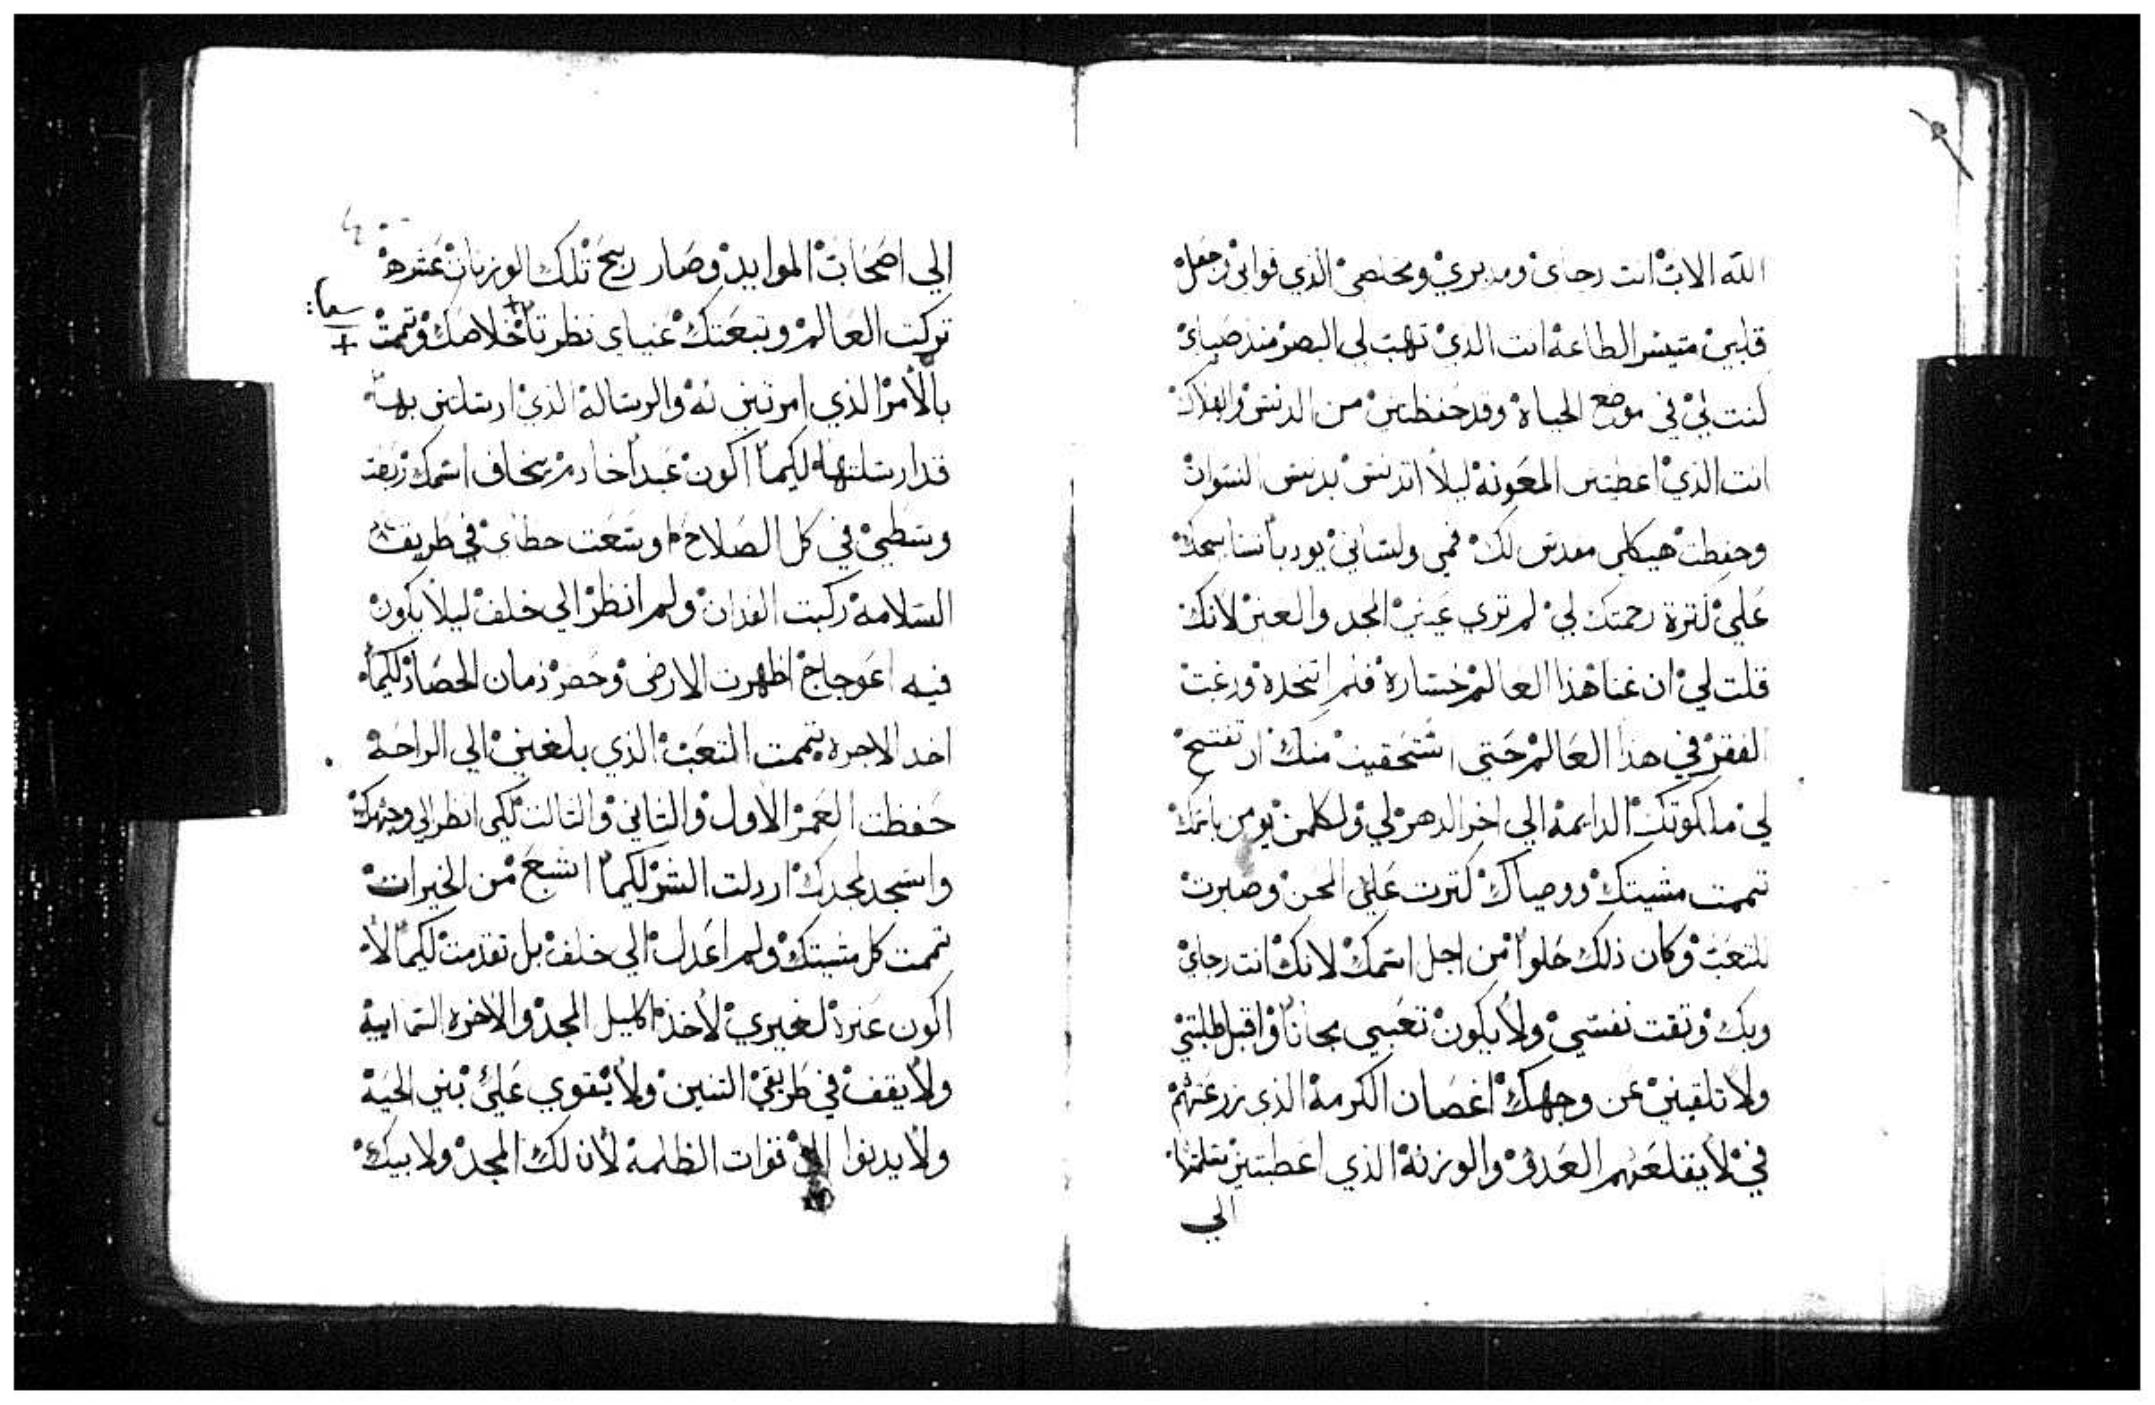 الله الاب انت رجاي ومدبري ومخلصي الذي قواني وجعل
قلبي متيسر الطاعه انت الذي تهب لي البصر منذ صباي
كنت لي في موضع الحياه وقد حفظتني من الدنس والهلاك
انت الذي اعطيتني المعونه ليلا اتدنس بدنس النسوان
وحفظت هيكلي مقدس لك فمي ولساني يودبا سنا سمك
علي كترة رحمتك لي لم تري عيني المجد والعين لانك
قلت لي ان غنا هذا العالم خساره فلم اتخده ورغبت
الفقر في هذا العالم حتي استحقيت منك ان تفتح
لي ملكوتك الدايمه الي اخر الدهر لي ولكلمن يومن باسمك
تممت مشيتك ووصياك كترت علي المحن وصبرت
للتعب وكان ذلك حلوا من اجل اسمك لانك انت رجاي
وبك وتقت نفسي ولا يكون تعبي مجانا واقبل طلبتي
ولا تلقيني عن وجهك اغصان الكرمه الذي زرعتهم
في لا يقلعهم العدو والوزنه الذي اعطيتني سلمتها
الي
الي اصحاب الموايد وصار ربح تلك الوزنات عشره
تركت العالم وتبعتك عيناي نظرتا خلاصك وتممت
بالامر الذي امرتني به والرساله الذي ارسلتني بها
قد ارسلتها لكيما اكون عبدا خادم يخاف اسمك
وسطي في كل الصلاح وسعت خطاي في طريق
السلامه ركبت الفدان ولم انظر الي خلف ليلا يكون
فيه اعوجاج اظهرت الارض وحضر زمان الحصاد لكيما
اخد الاجره تممت التعب الذي بلغني الي الراحه
حفظت العمر الاول والتاني والتالت لكي انظر الي وجهك
واسجد لمجدك اردلت الشر لكيما اشبع من الخيرات
تممت كل مشيتك ولم اعدل الي خلف بل تقدمت لكيما لا
اكون عترة لغيري لاخذ اكليل المجد والاخره السماييه
ولا يقف في طريقي التنين ولا يقوي علي بني الحيه
ولا يدنوا الي قوات الظلمه لان لك المجد ولابيك